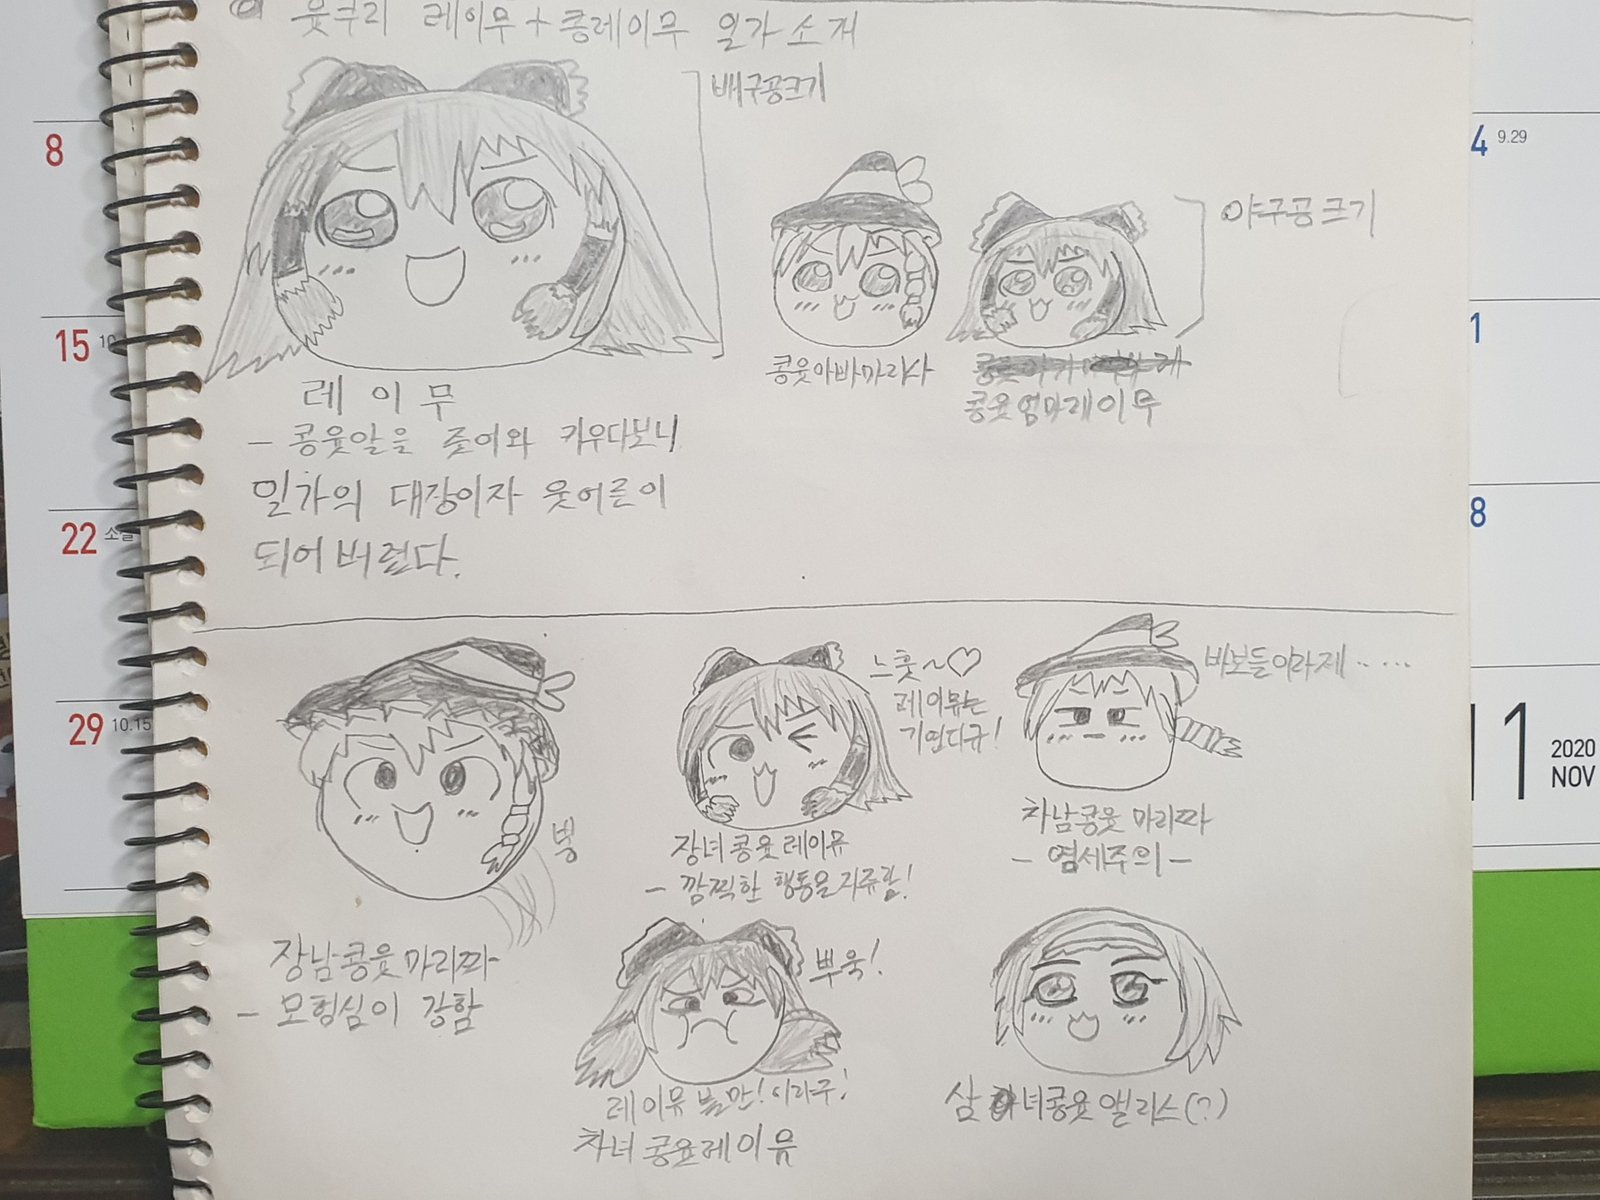 윳쿠리 레이무 + 콩레이무 일가 소개
배구공크기
야구공크기
레이무
- 콩윳알을 줏어와 키우다보니
일가의 대장이자 웃어른이
되어버렸다.
콩윳아빠마리사
콩윳엄마레이무
붕
장남콩윳 마리쨔
- 모험심이 강함
느훗~♡
레이뮤는
기엽다규!
장녀콩윳레이뮤
- 깜찍한 행동을 자류함!
바보들이라제 ‥ …
차남콩윳 마리쨔
- 염세주의 -
뿌욱!
레이뮤 불만! 이라구!
차녀 콩윳레이뮤
삼녀콩윳 앨리스(?)
8
15
22
소설
29
10.15
4
9.29
1
8
11
2020
NOV